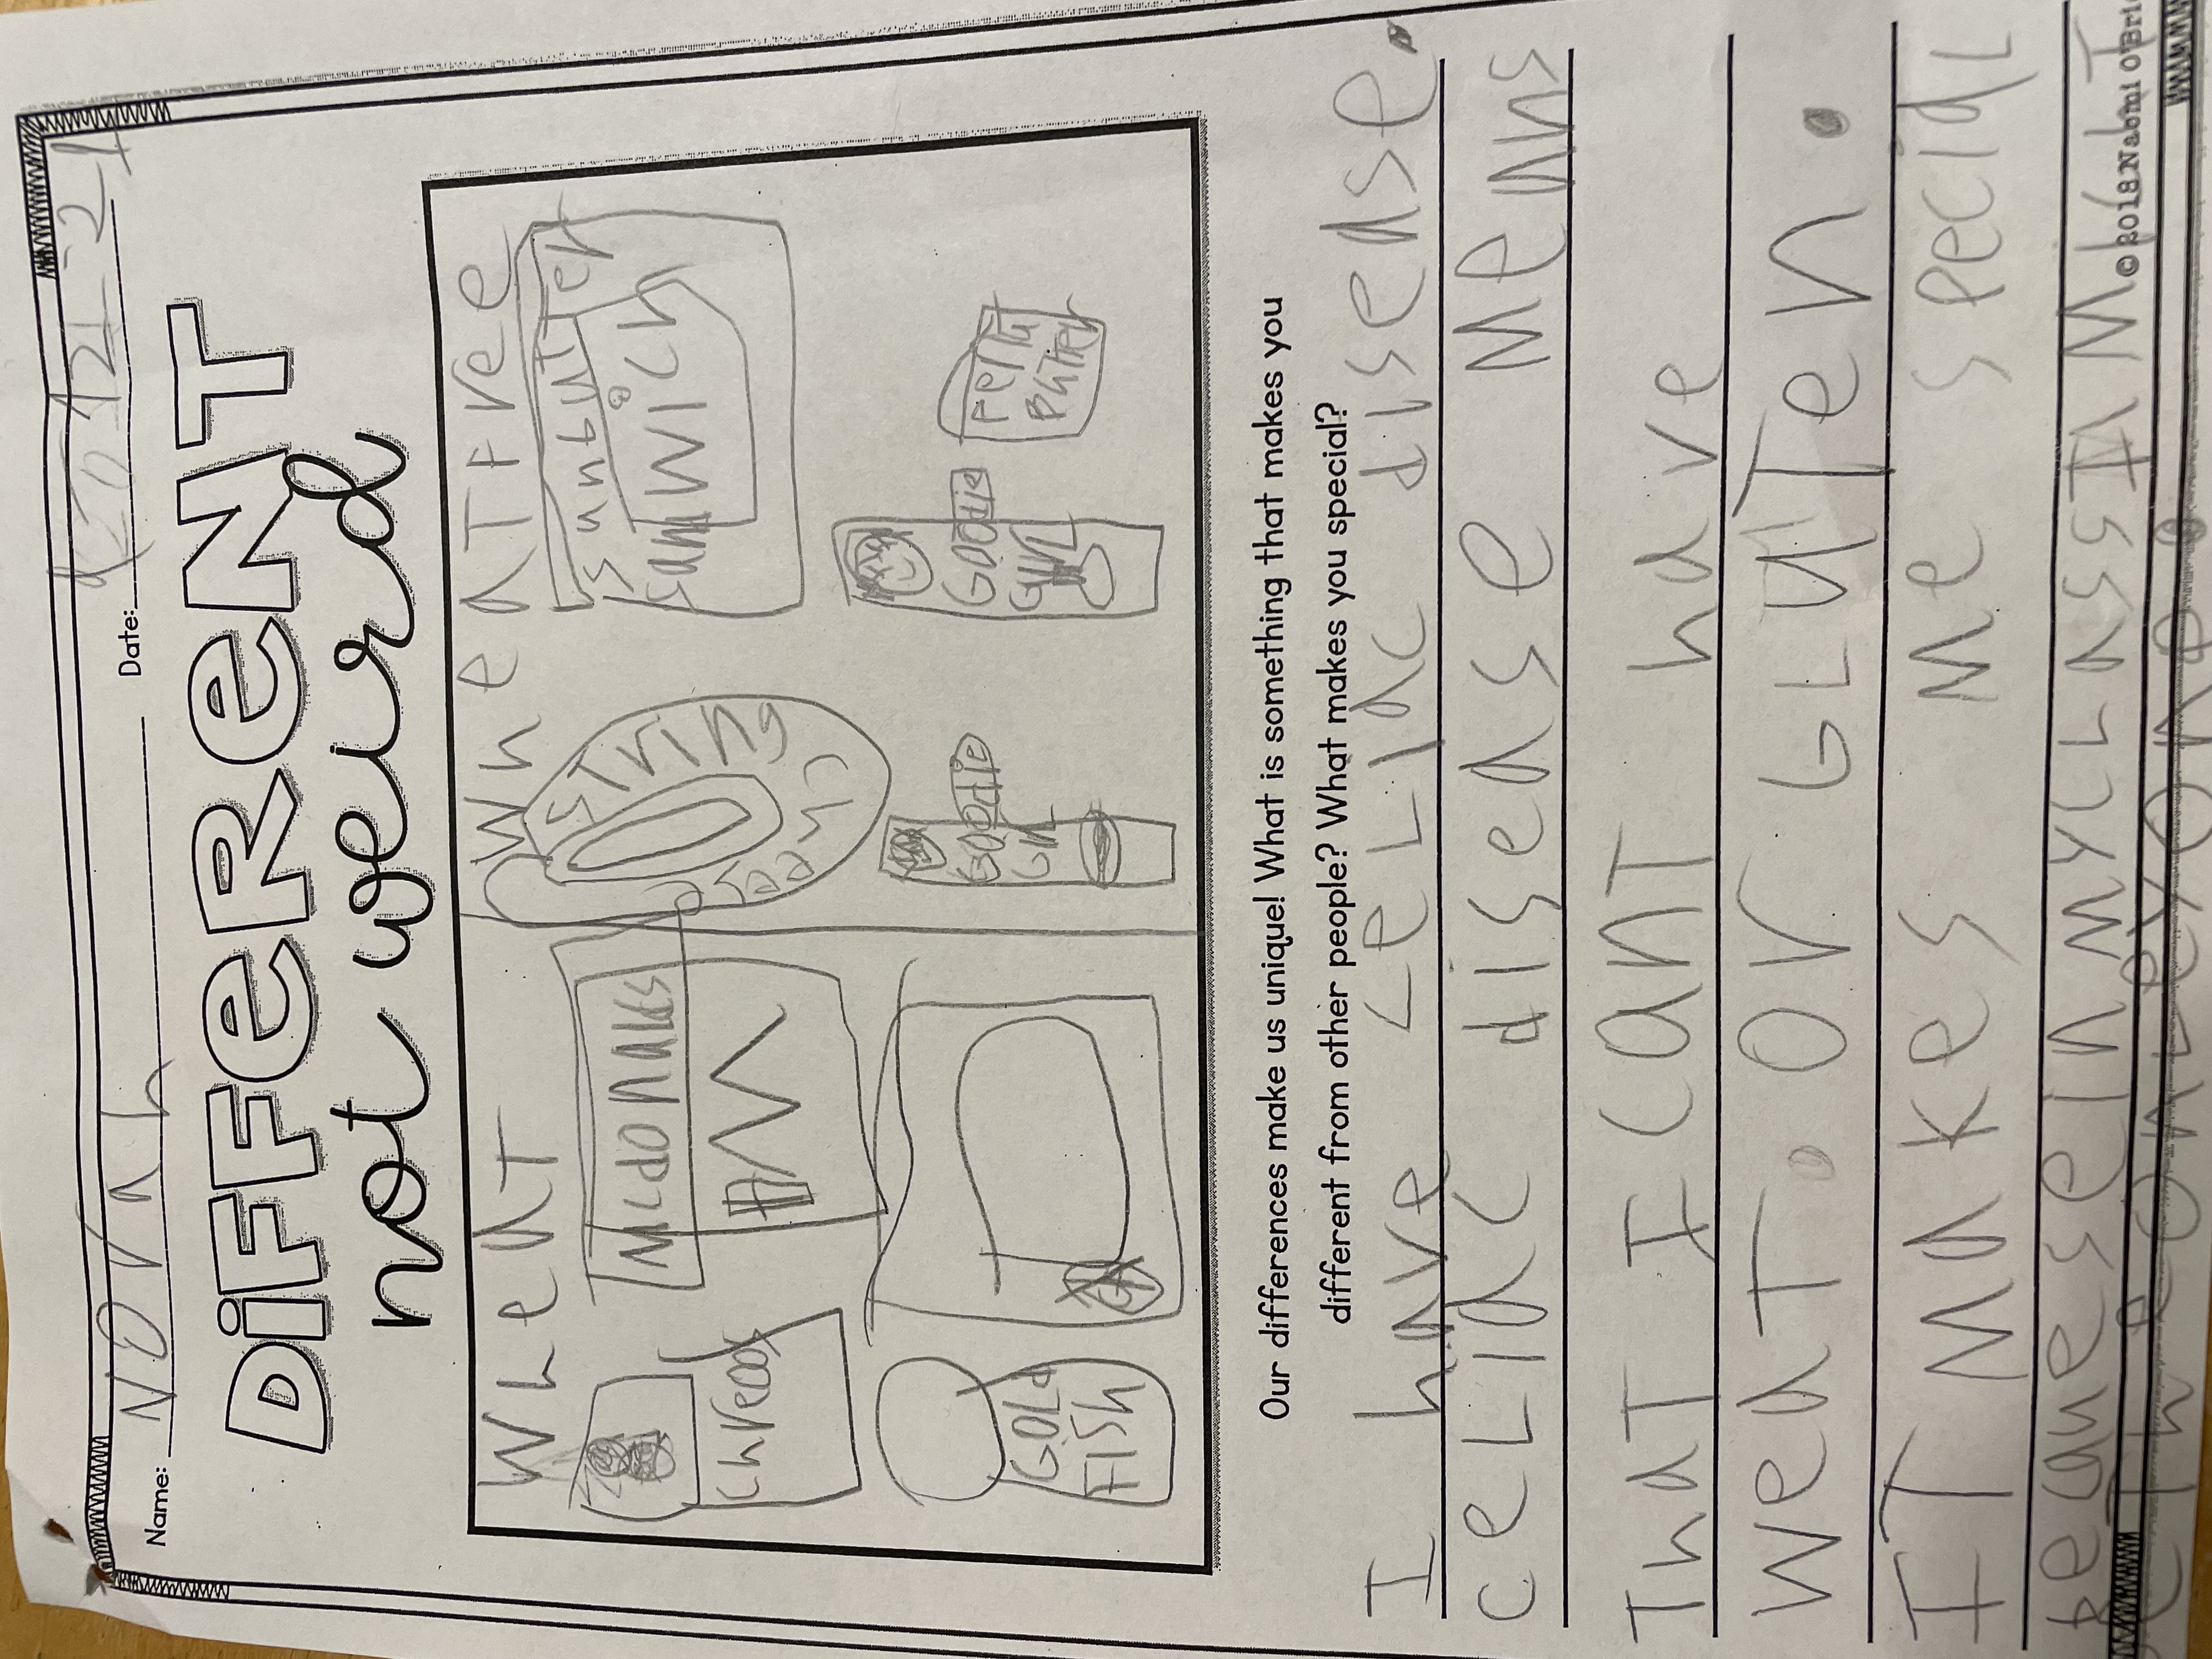 Name: NOrah
Date: 12-21
DiFFeReNT
not weird
WheAT
WheATFree
Mcdonalds
M
chreoos
STriNG
cheese
sunbutter
sandwich
GOLd
FISh
GOOdie
GirL
GOOdie
GirL
Butter
Our differences make us unique! What is something that makes you
different from other people? What makes you special?
I have ceLiac disease.
ceLiac disease Means
ThaT I canT have
weaT. Or GLuTen.
IT Makes Me specialL
becauese in MyCLass I MighT
be The OnLey One.
© 2018 Naomi O'Bri